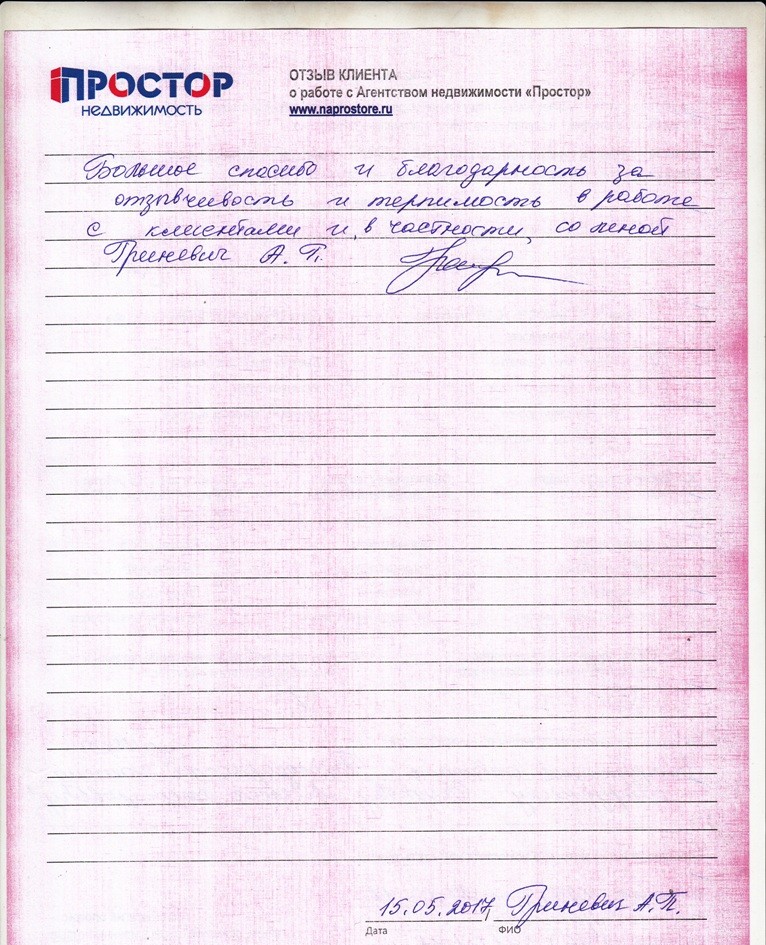 ПРОСТОР
НЕДВИЖИМОСТЬ
ОТЗЫВ КЛИЕНТА
о работе с Агентством недвижимости «Простор»
www.naprostore.ru
Большое спасибо и благодарность за
отзывчивость и терпимость в работе
с клиентами и, в частности, со мной
Гриневич А. П.
15.05.2017 Гриневич А.П.
Дата ФИО